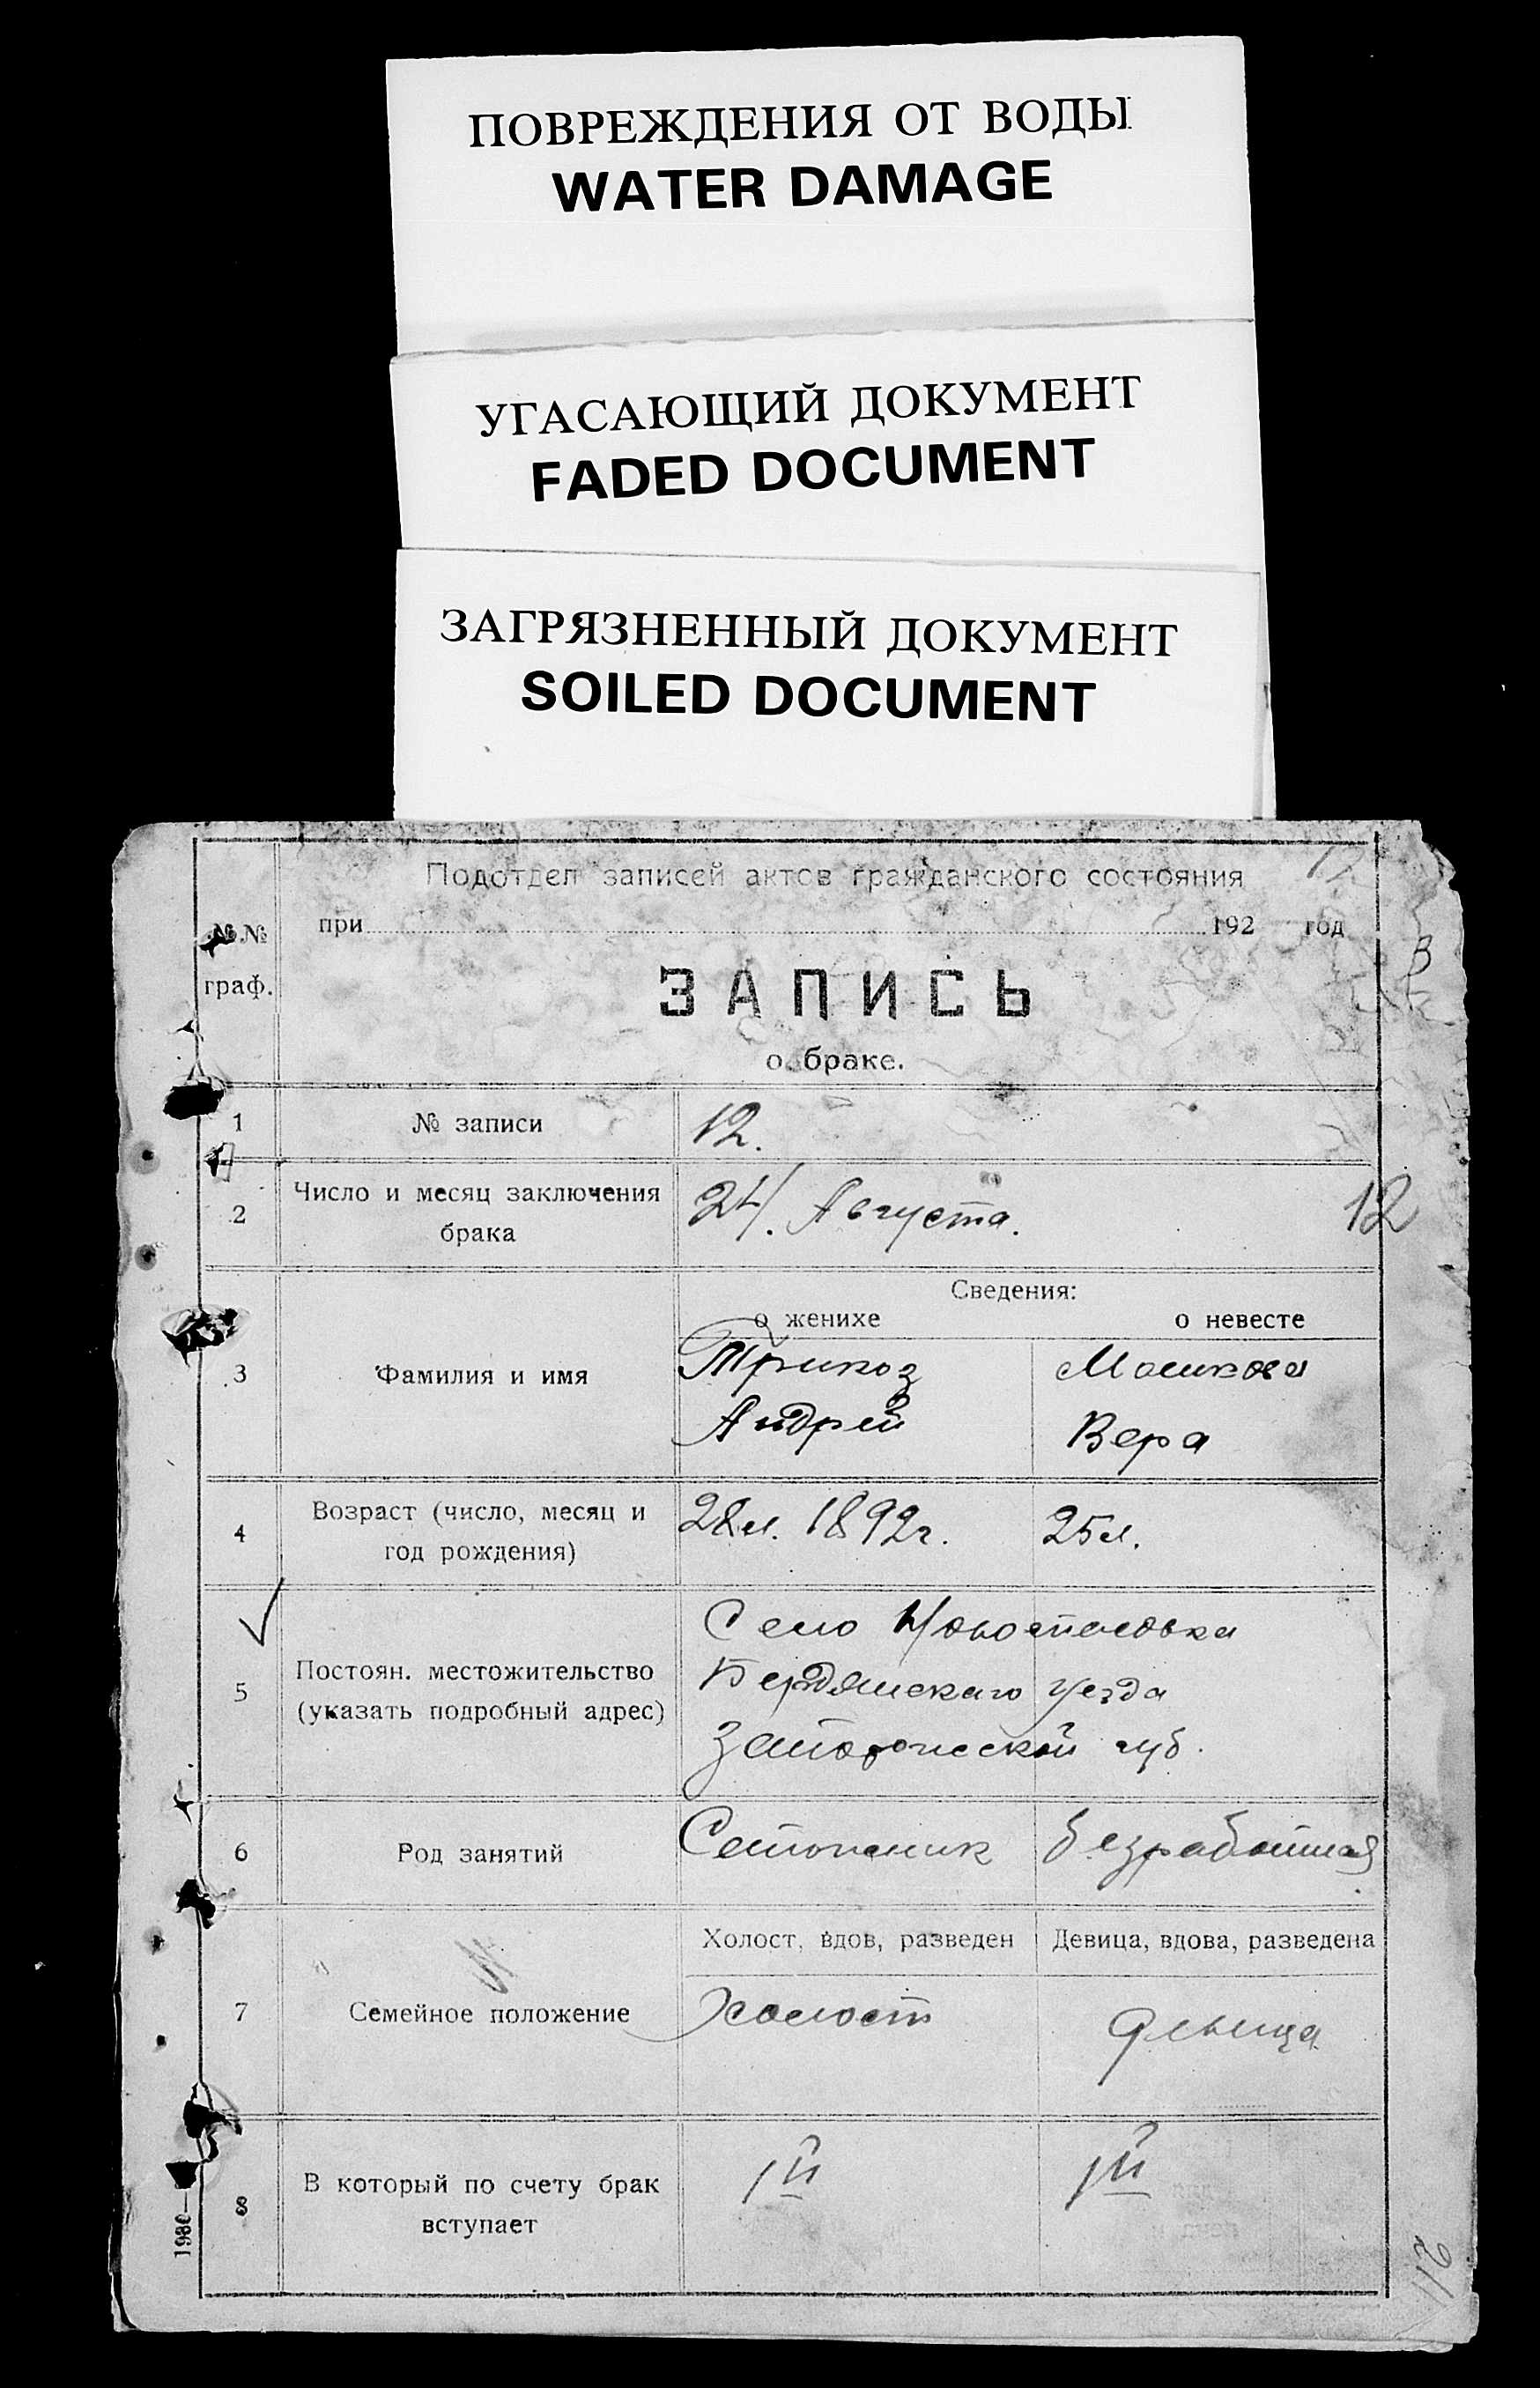 ПОВРЕЖДЕНИЯ ОТ ВОДЫ
WATER DAMAGE
УГАСАЮЩИЙ ДОКУМЕНТ
FADED DOCUMENT
ЗАГРЯЗНЕННЫЙ ДОКУМЕНТ
SOILED DOCUMENT
Подотдел записей актов гражданского состояния
№№ при 192 год
граф.
ЗАПИСЬ
о браке.
1 № записи 12.
2 Число и месяц заключения брака 24. Августа. 12
Сведения:
о женихе о невесте
3 Фамилия и имя Трикоз Машкова
Андрей Вера
4 Возраст (число, месяц и 28л. 1892г. 25л.
год рождения)
Село
5 Постоян. местожительство Бердянскаго уезда
(указать подробный адрес)
губ.
6 Род занятий безработная
Холост, вдов, разведен Девица, вдова, разведена
7 Семейное положение Холост девица
8 В который по счету брак 1й 1й
вступает
1980—